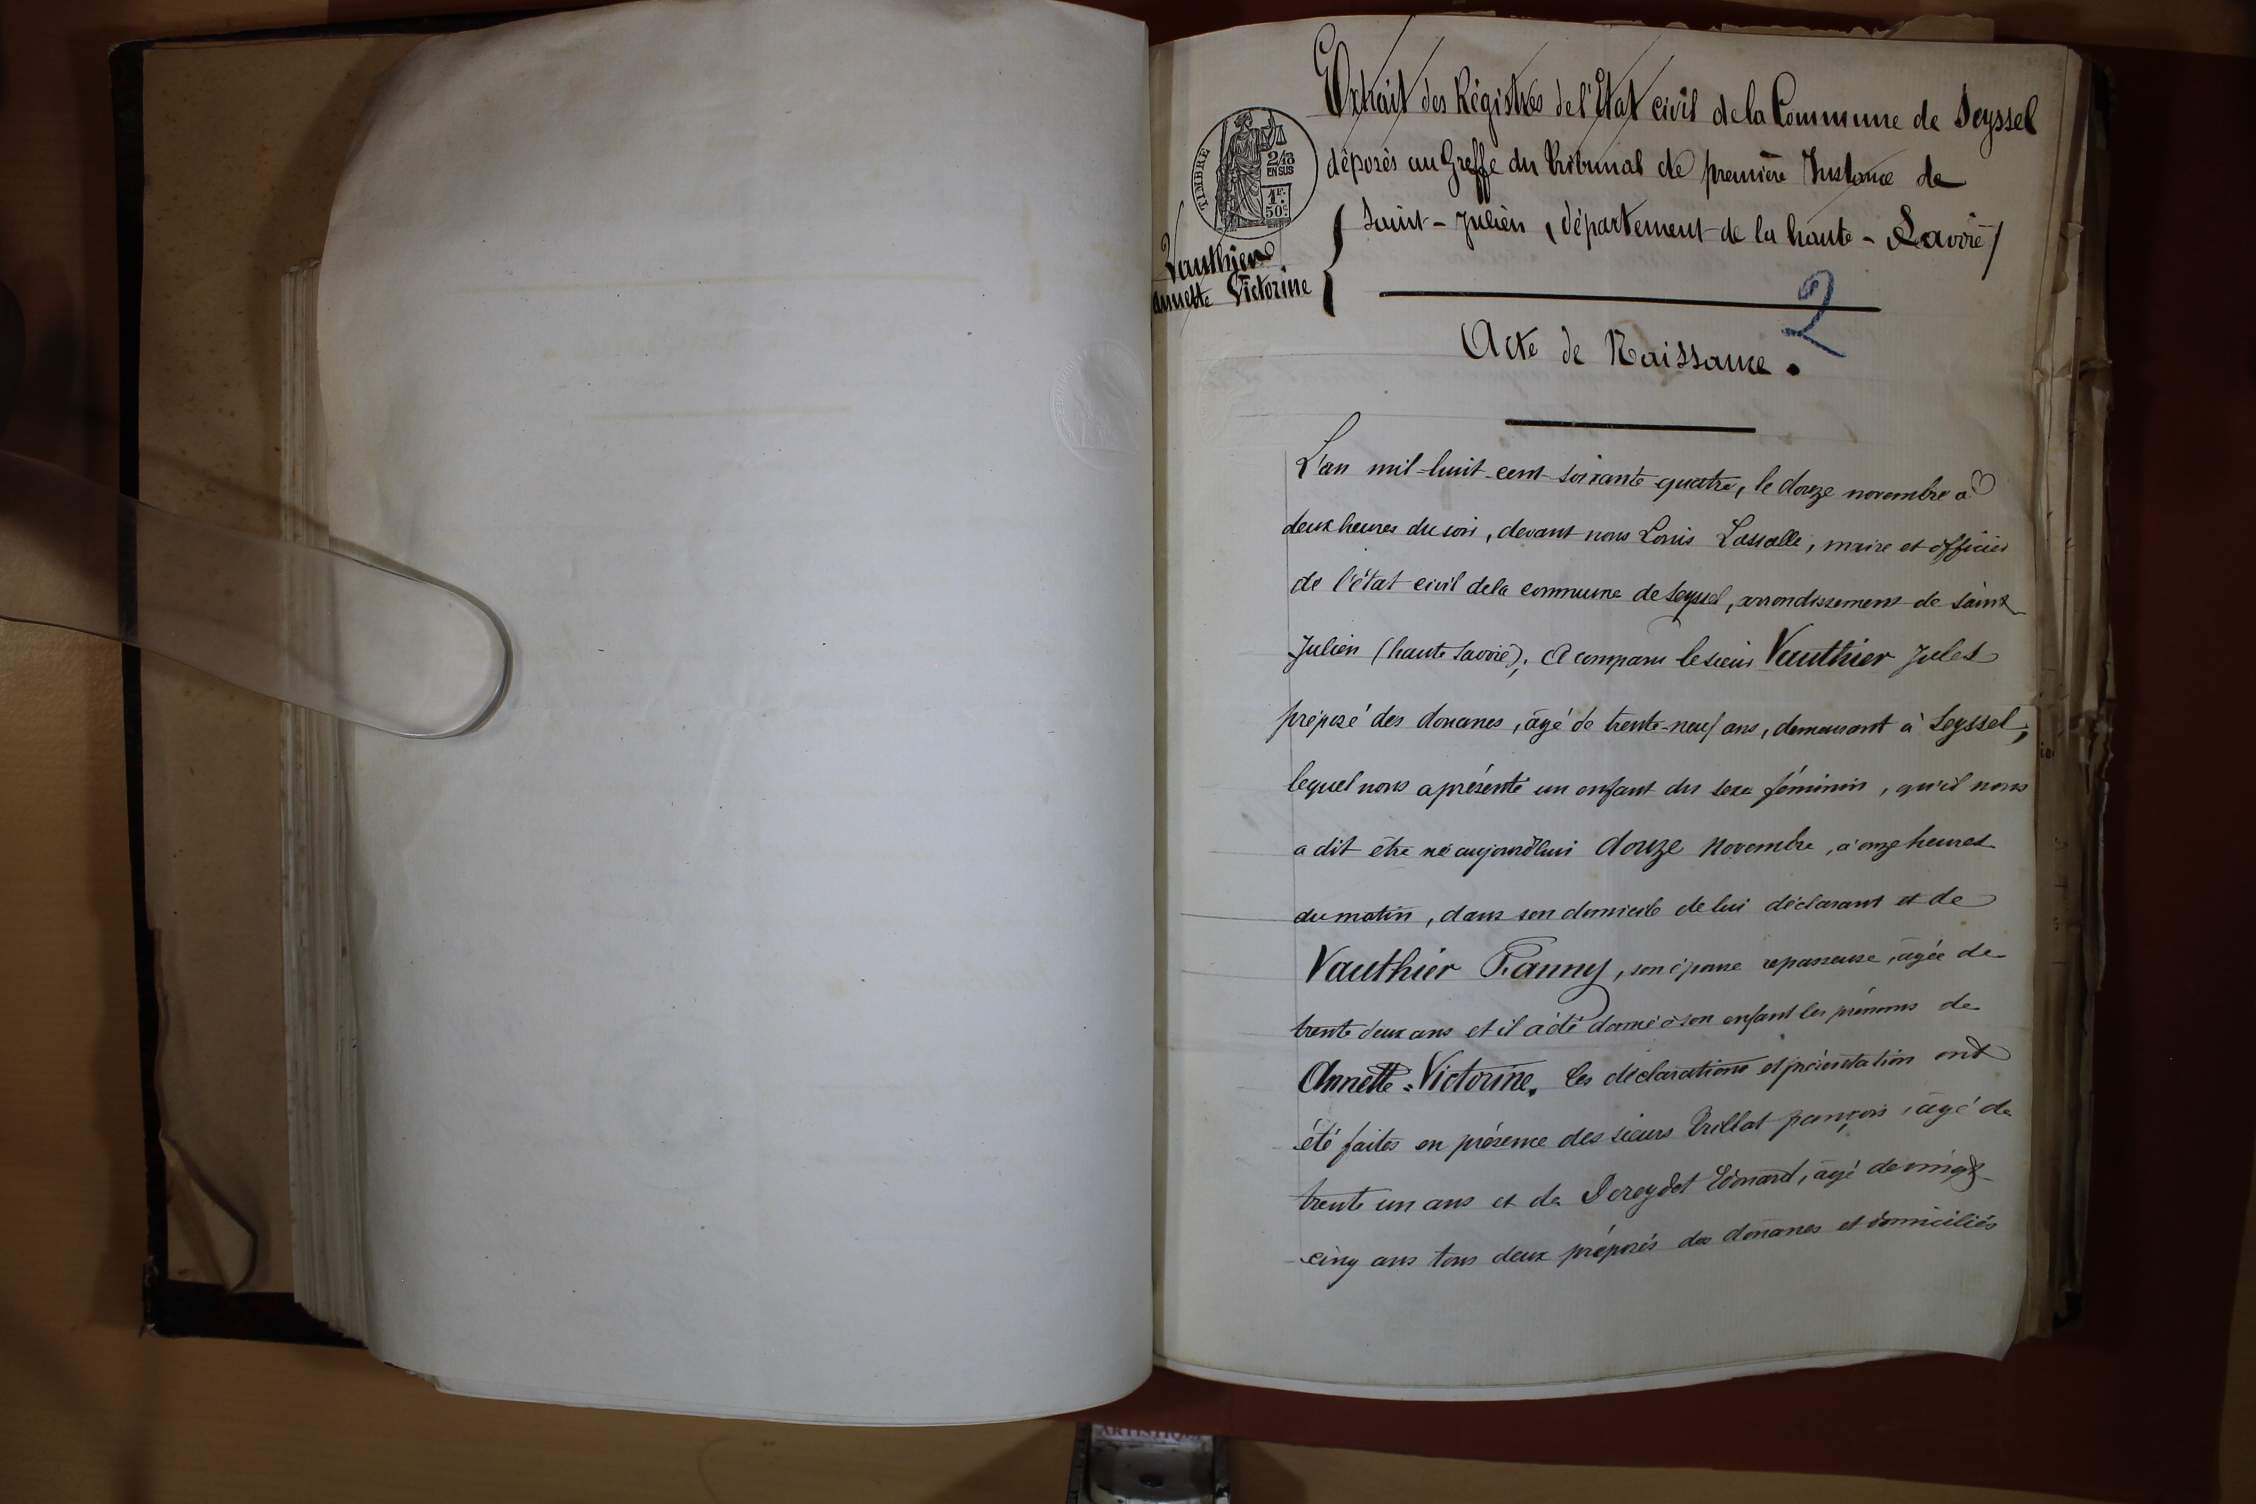 Extrait des Régistres de l'Etat civil de la Commune de Seyssel
déposés au Greffe du Tribunal de première Instance de
Saint-Julien, département de la haute-Savoie
TIMBRE
2/10
EN SUS
1F.
50c
Vauthier
annette Victorine
2
Acte de Naissance.
L'an mil-huit-cent-soixante quatre, le douze novembre à
deux heures du soir, devant nous Louis Lassalle, maire et officier
de l'état civil de la commune de Seyssel, arrondissement de saint
Julien (haute Savoie); A comparu le sieur Vauthier Jules
préposé des douanes, âgé de trente-neuf ans, demeurant à Seyssel,
lequel nous a présenté un enfant du sexe féminin, qu'il nous
a dit être né aujourd'hui douze Novembre, à onze heures
du matin, dans son domicile de lui déclarant et de
Vauthier Fanny, son épouse repasseuse, âgée de
trente deux ans et il a été donné à son enfant les prénoms de
Annette-Victorine. Les déclaration et présentation ont
été faites en présence des sieurs Trillat françois, âgé de
trente un ans et de Edouard, âgé de vingt
cinq ans tous deux préposés des douanes et domiciliés